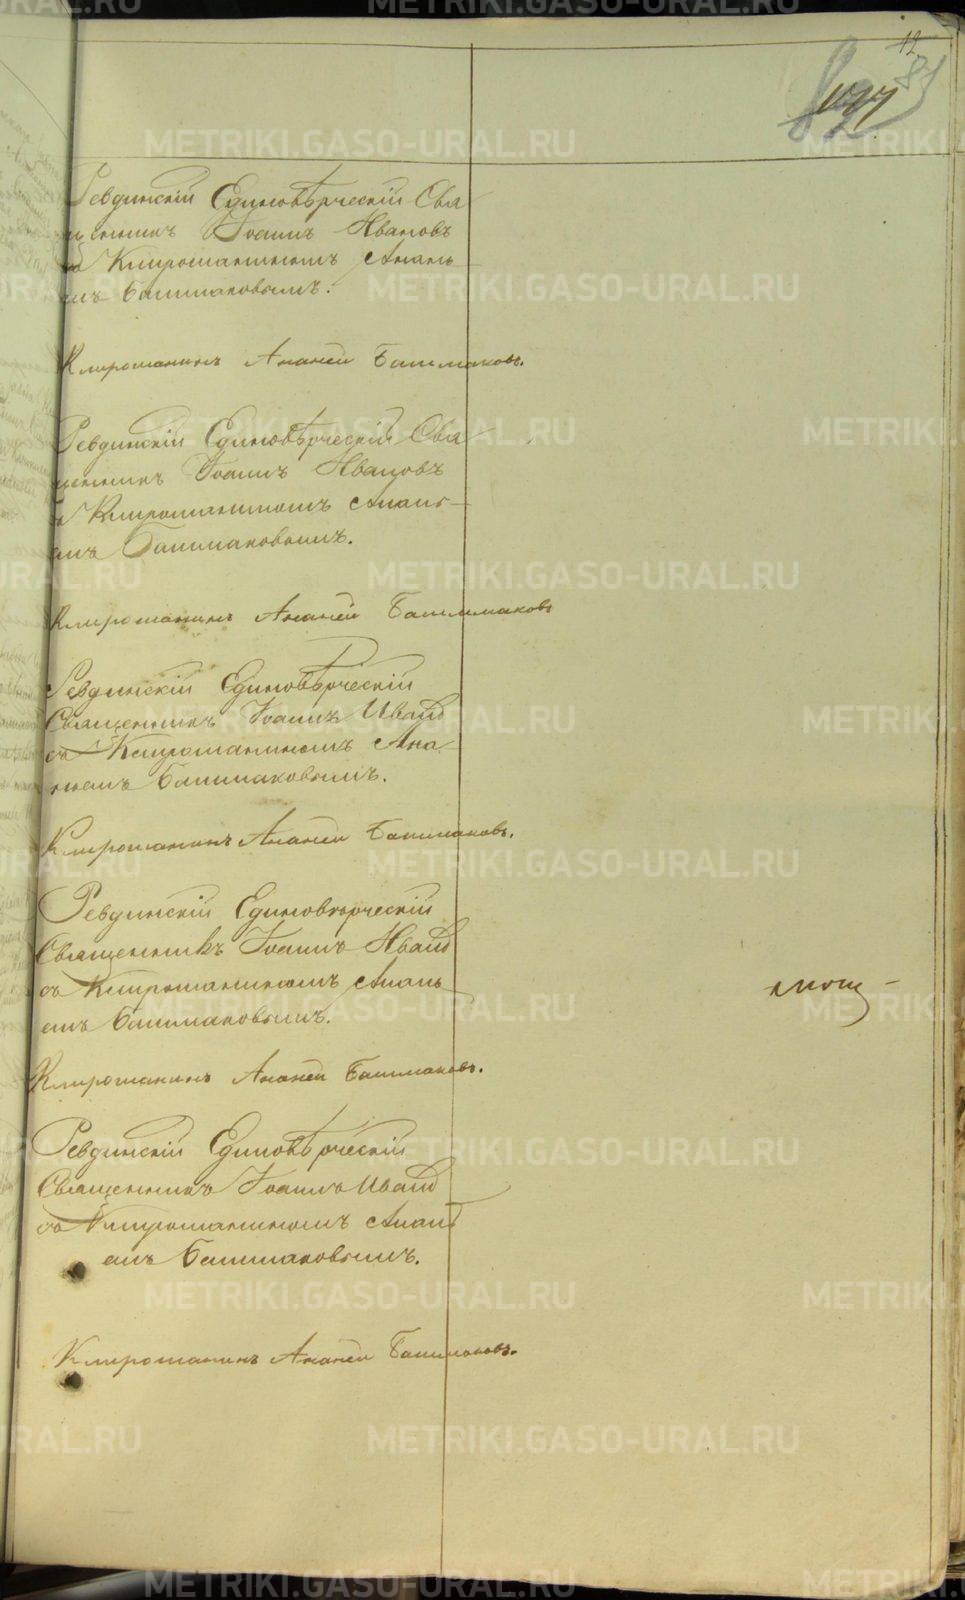 12
81
Ревдинскій Единовѣрческій Свя
щенникъ Іоаннъ Ивановъ
съ Клирошаниномъ Анань
емъ Башмаковымъ.
Клирошанинъ Ананей Башмаковъ.
Ревдинскій Единовѣрческій Свя
щенникъ Іоаннъ Ивановъ
съ Клирошаниномъ Анань
емъ Башмаковымъ.
Клирошанинъ Ананей Башмаковъ
Ревдинскій Единовѣрческій
Священникъ Іоаннъ Иванов
съ Клирошаниномъ Ана
ньемъ Башмаковымъ.
Клирошанинъ Ананей Башмаковъ.
Ревдинскій Единовѣрческій
Священникъ Іоаннъ Иванов
съ Клирошаниномъ Анань
емъ Башмаковымъ.
Клирошанинъ Ананей Башмаковъ.
Ревдинскій Единовѣрческій
Священникъ Іоаннъ Иванов
съ Клирошаниномъ Анань
емъ Башмаковымъ.
Клирошанинъ Ананей Башмаковъ.
METRIKI.GASO-URAL.RU